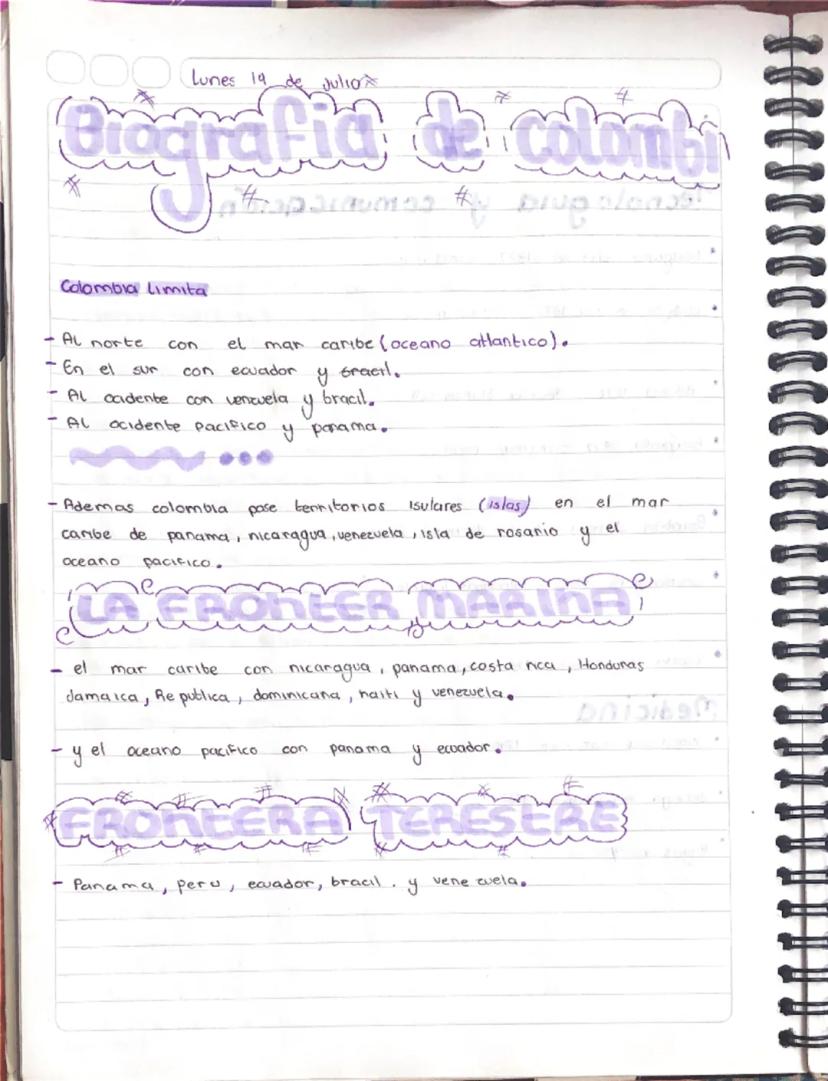 Lunes 19 de Julio
Biografia de colombi
Colombia Limita
- AL norte con el mar caribe (oceano atlantico).
- En el sur con ecuador y bracil.
- AL ocidente con venezuela y bracil.
- AL ocidente pacifico y panama.
- Ademas colombia pose territorios isulares (islas) en el mar
caribe de panama, nicaragua, venezuela, isla de rosario y el
oceano pacifico.
LA FRONTER MARINA
- el mar caribe con nicaragua, panama, costa rica, Honduras
Jamaica, Republica, dominicana, haiti y venezuela.
- y el oceano pacifico con panama y ecuador.
FRONTERA TERESTRE
- Panama, peru, ecuador, bracil. y venezuela.